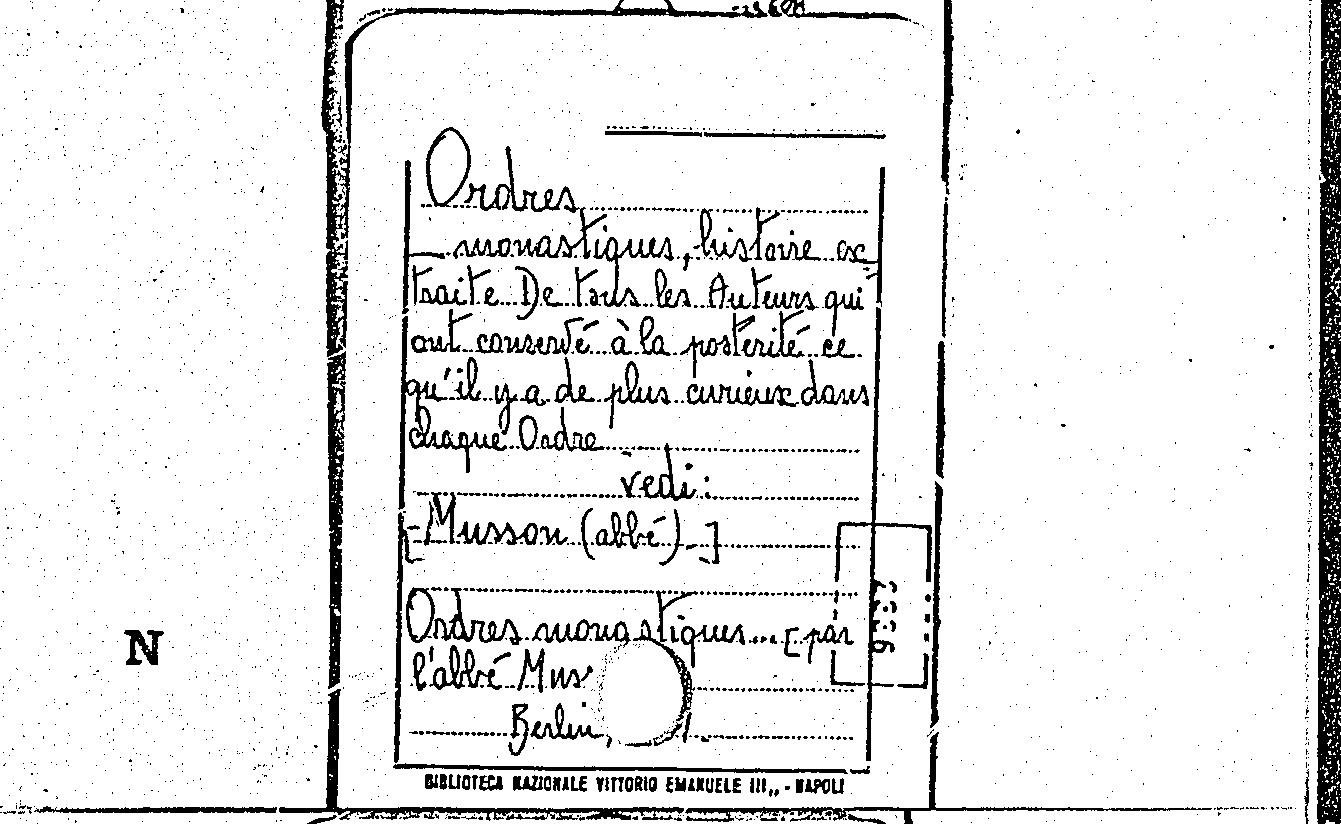 Ordres
— monastiques, histoire ex-
traite De tous les Auteurs qui
ont conservé à la postérité ce
qu'il y a de plus curieux dans
chaque Ordre
vedi:
[-Musson (abbé).]
Ordres monastiques... [par
l'abbé Mus
Berlin,
BIBLIOTECA NAZIONALE VITTORIO EMANUELE III,, - NAPOLI
N